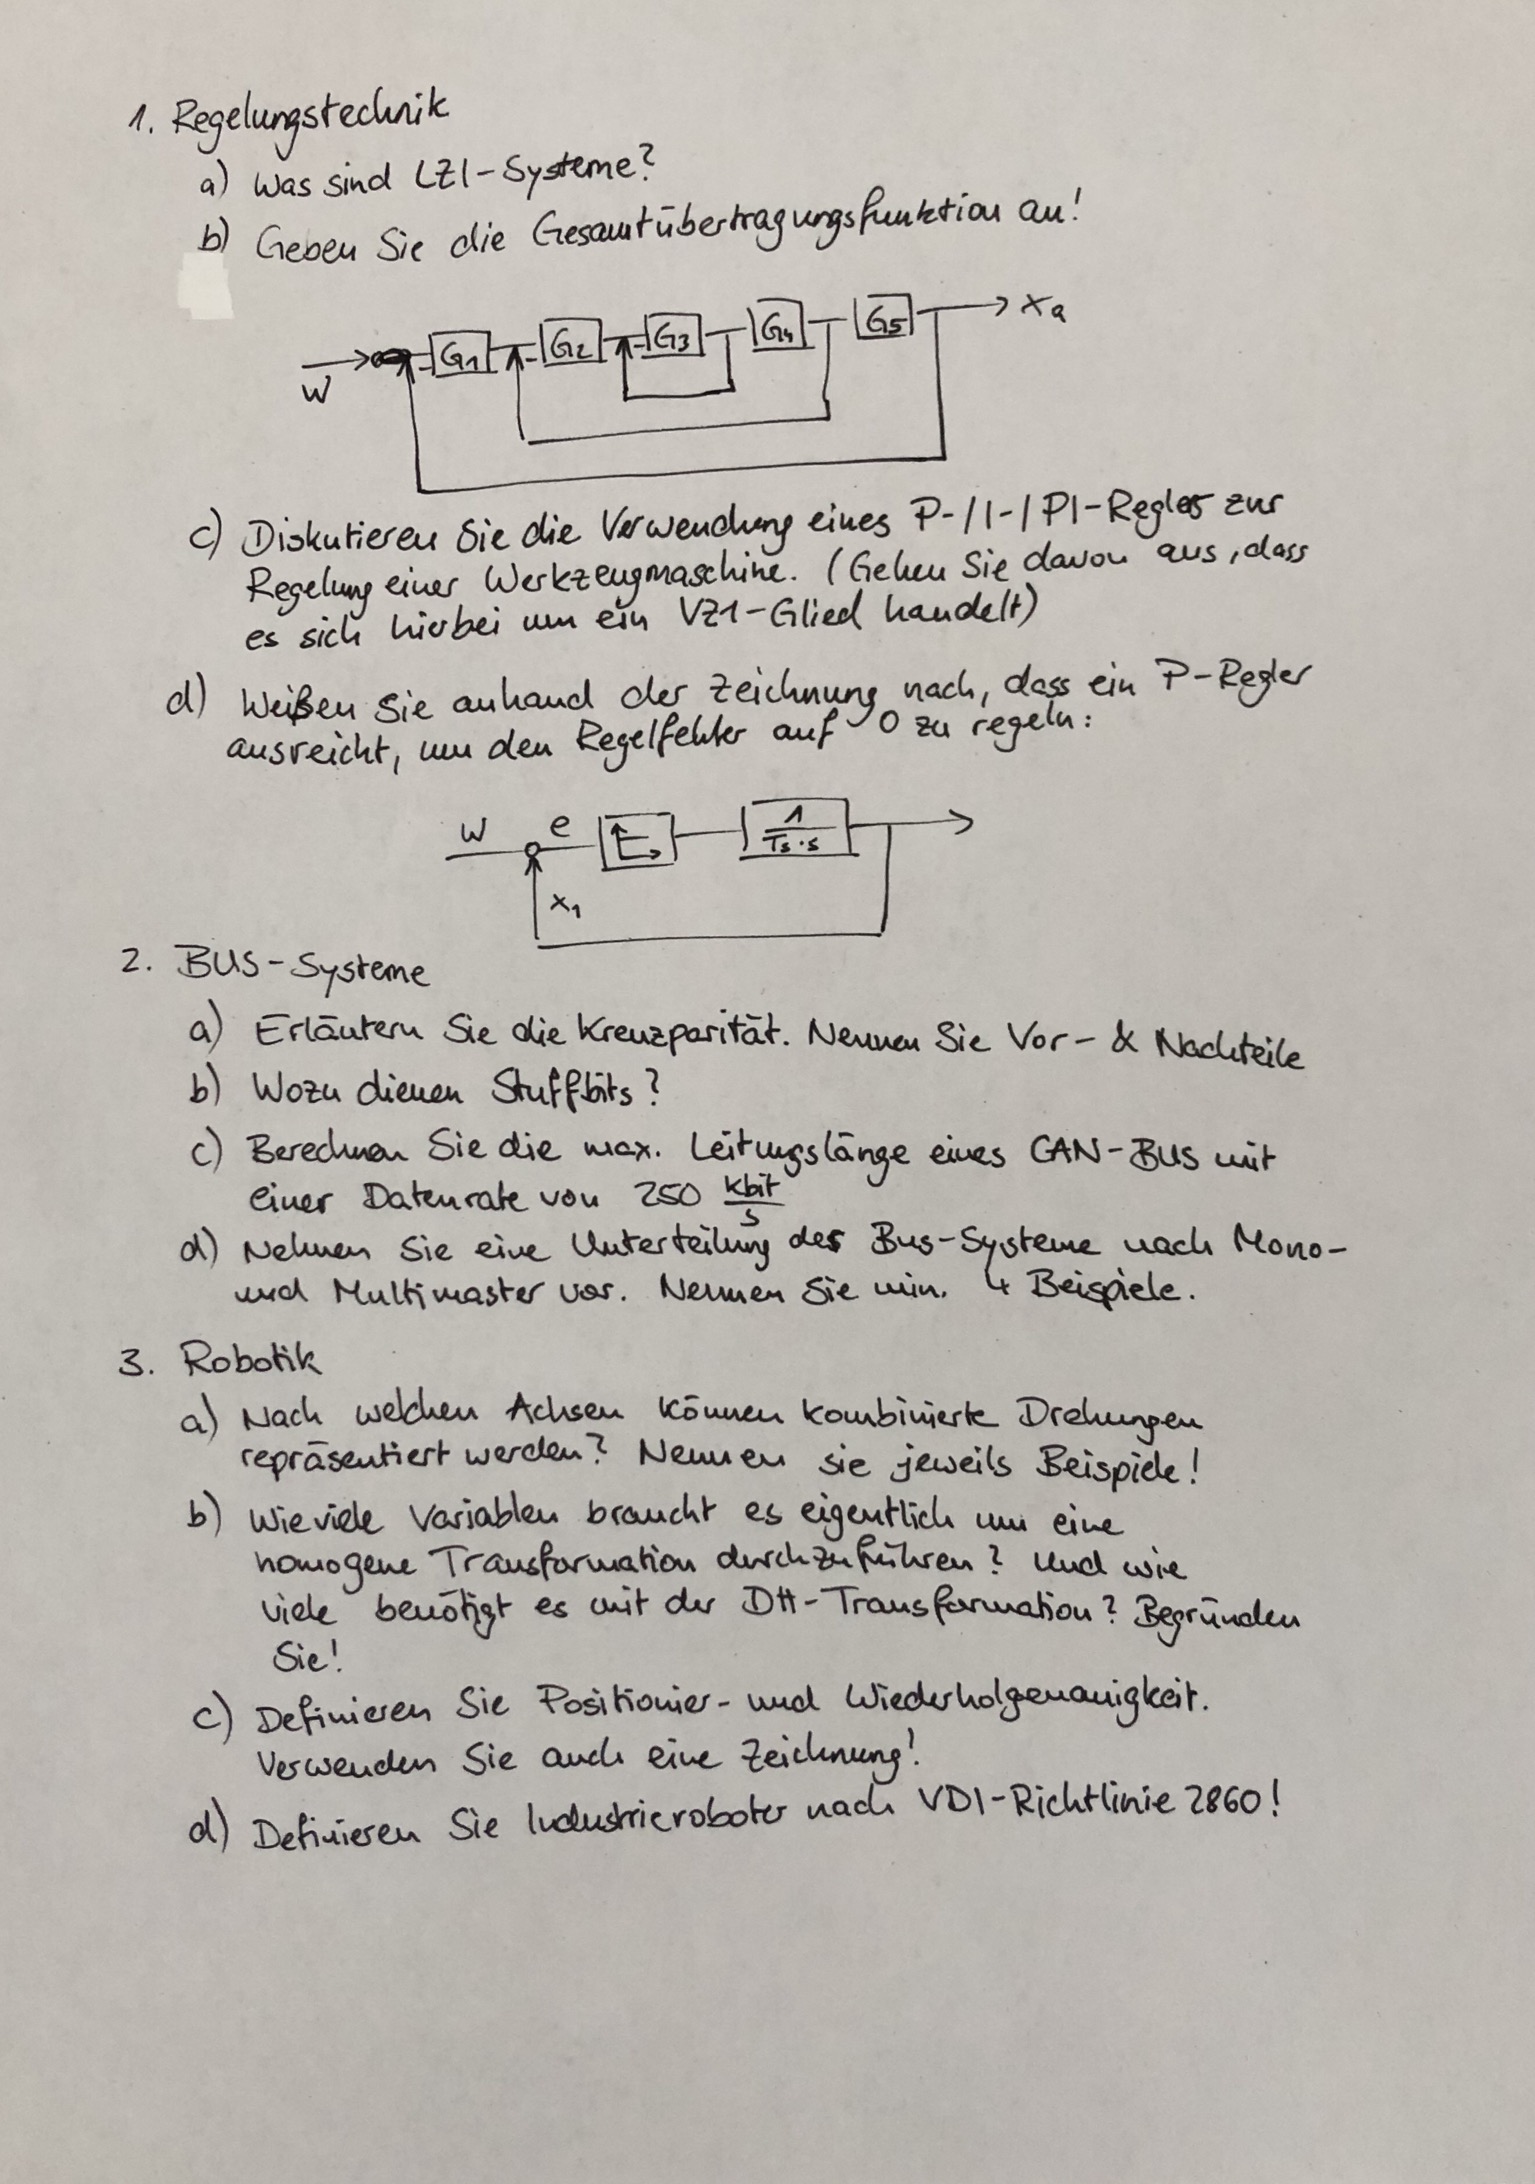 1. Regelungstechnik
a) Was sind LZI-Systeme?
b) Geben Sie die Gesamtübertragungsfunktion an!
W - G1 - G2 - G3 G4 G5 xa
c) Diskutieren Sie die Verwendung eines P-/I-/PI-Regler zur
Regelung einer Werkzeugmaschine. (Gehen Sie davon aus, dass
es sich hierbei um ein VZ1-Glied handelt)
d) Weißen Sie anhand der Zeichnung nach, dass ein P-Regler
ausreicht, um den Regelfehler auf 0 zu regeln:
W e 1/Ts·s
x1
2. BUS-Systeme
a) Erläutern Sie die Kreuzparität. Nennen Sie Vor- & Nachteile
b) Wozu dienen Stuffbits?
c) Berechnen Sie die max. Leitungslänge eines CAN-BUS mit
einer Datenrate von 250 kbit/s
d) Nehmen Sie eine Unterteilung der Bus-Systeme nach Mono-
und Multimaster vor. Nennen Sie min. 4 Beispiele.
3. Robotik
a) Nach welchen Achsen können kombinierte Drehungen
repräsentiert werden? Nennen sie jeweils Beispiele!
b) Wieviele Variablen braucht es eigentlich um eine
homogene Transformation durchzuführen? Und wie
viele benötigt es mit der DH-Transformation? Begründen
Sie!
c) Definieren Sie Positionier- und Wiederholgenauigkeit.
Verwenden Sie auch eine Zeichnung!
d) Definieren Sie Industrieroboter nach VDI-Richtlinie 2860!